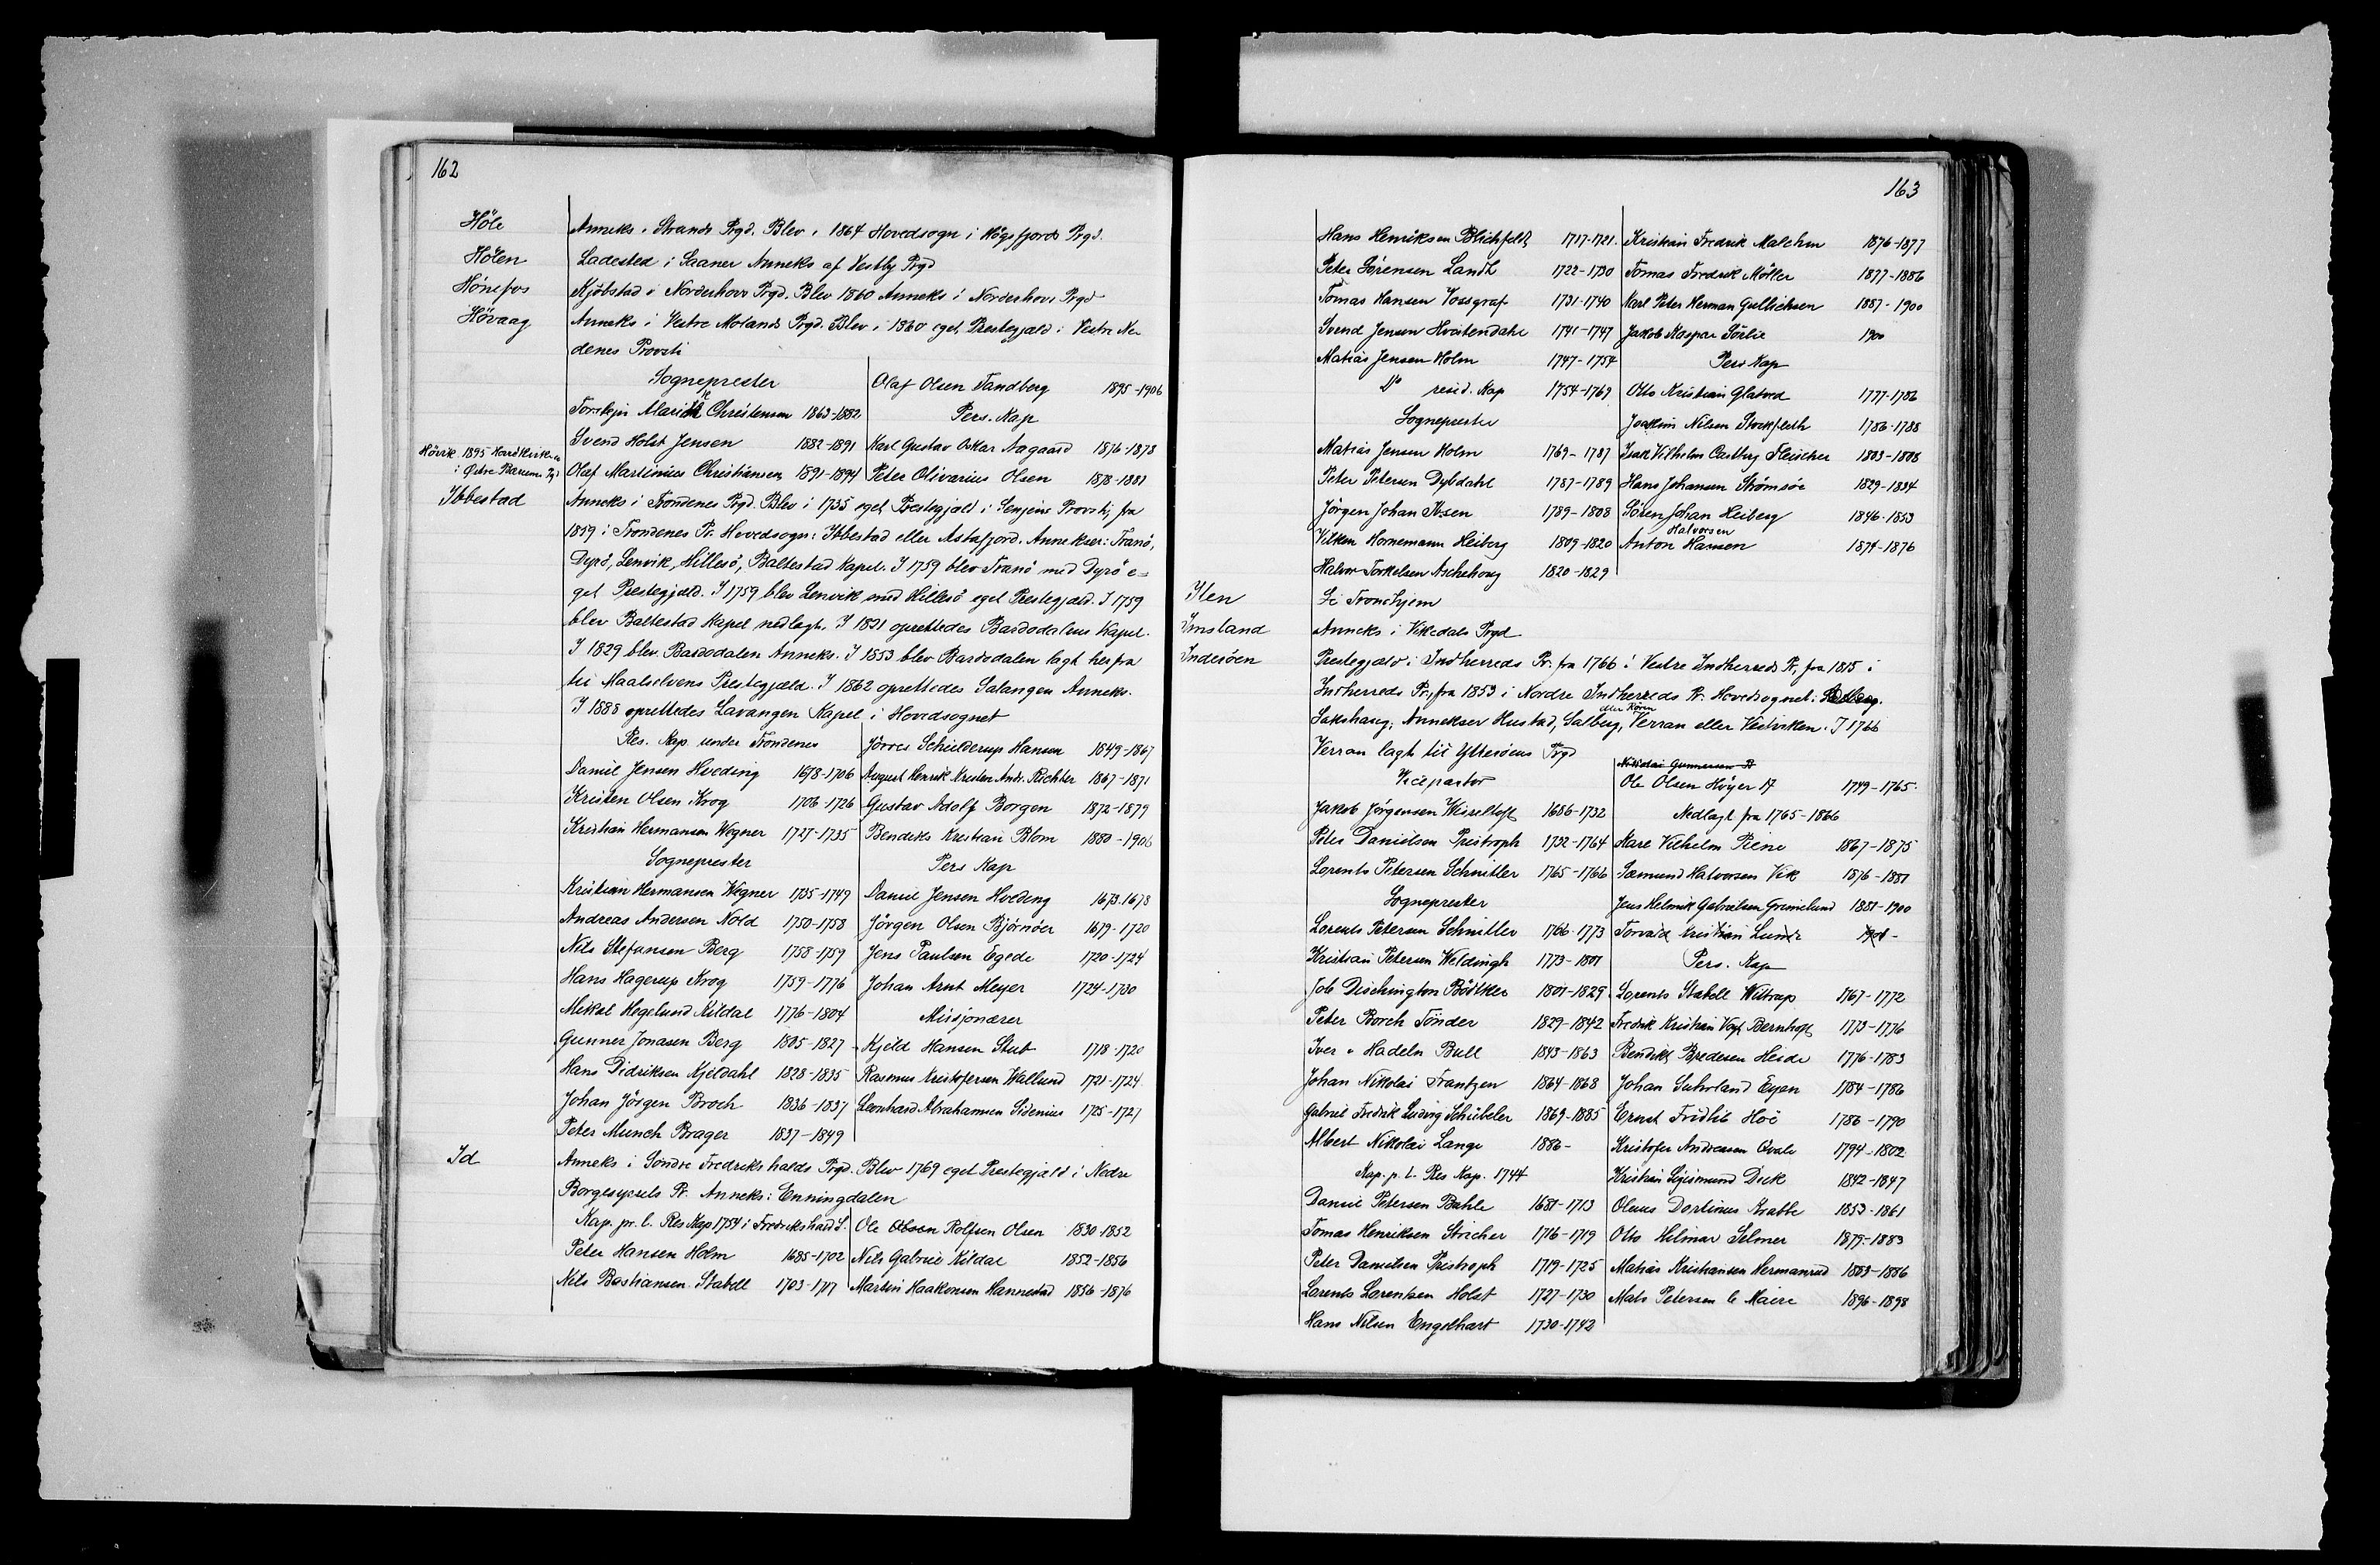 162
Höle Anneks i Strands Prgd. Blev i 1864 Hovedsogn i Högsfjords Prgd.
Hölen Ladested i Saaner Anneks af Vestby Prgd
Hönefos Kjöbstad i Norderhovs Prgd. Blev 1860 Anneks i Norderhovs Prgd
Hövaag Anneks i Vestre Molands Prgd. Blev i 1860 eget Prestegjæld i Vestre Ne
denes Provsti
Sogneprester
Torstejn Christensen 1863-1882
Svend Holst Jensen 1882-1891
Hövik 1895
i Östre Bærums Pgd
Olaf Martinius Christiansen 1891-1894
Olaf Olsen Tandberg 1895-1906
Pers. Kap
Karl Gustav Oskar Aagaard 1876-1878
Peter Olivarius Olsen 1878-1881
Ibbestad Anneks i Trondenes Prgd. Blev i 1735 eget Prestegjæld i Senjens Provsti, fra
1859 i Trondenes Pr. Hovedsogn: Ibbestad eller Astafjord. Annekser: Tranö,
Dyrö, Lenvik, Hillesö, Baltestad Kapel. I 1759 blev Tranö med Dyrö e=
get Prestegjæld. I 1759 blev Lenvik med Hillesö eget Prestegjæld. I 1759
blev Baltestad Kapel nedlagt. I 1821 oprettedes Bardodalens Kapel.
I 1829 blev Bardodalen Anneks. I 1853 blev Bardodalen lagt herfra
til Maalselvens Prestegjæld. I 1862 oprettedes Salangen Anneks.
I 1888 oprettedes Lavangen Kapel i Hovedsognet
Res. Kap under Trondenes
Daniel Jensen Hveding 1678-1706
Kristen Olsen Krog 1706-1726
Kristian Hermansen Wegner 1727-1735
Sogneprester
Kristian Hermansen Wegner 1735-1749
Andreas Andersen Nold 1750-1758
Nils Stefansen Berg 1758-1759
Hans Hagerup Krog 1759-1776
Mikal Hegelund Kildal 1776-1804
Gunner Jonasen Berg 1805-1827
Hans Didriksen Kjeldahl 1828-1835
Johan Jörgen Broch 1836-1837
Peter Munch Brager 1837-1849
Jörres Schielderup Hansen 1849-1867
August Henrik Kristen Andr. Richter 1867-1871
Gustav Adolf Borgen 1872-1879
Bendiks Kristian Blom 1880-1906
Pers Kap
Daniel Jensen Hveding 1673.1678
Jörgen Olsen Björnöer 1679-1720
Jens Paulsen Egede 1720-1724
Johan Arnt Meyer 1724-1730
Missjonærer
Kjeld Hansen Stub 1718-1720
Rasmus Kristofersen Wallund 1721-1724
Leonhard Abrahamsen Sidenius 1725-1727
Id Anneks i Söndre Fredrikshalds Prgd. Blev 1769 eget Prestegjæld i Nedre
Borgesyssels Pr. Anneks: Enningdalen
Kap. pr. l. Res Kap 1754 i Fredrikshald S.
Peter Hansen Holm 1685-1702
Nils Bastiansen Stabell 1703-1717
Ole Olsen Rolfsen Olsen 1830-1852
Nils Gabriel Kildal 1852-1856
Martin Haakonsen Hannestad 1856-1876
163
Hans Henriksen Blichfeldt 1717-1721.
Peter Sörensen Landt 1722-1730
Tomas Hansen Vossgraf 1731-1740
Svend Jensen Hvistendahl 1741-1747
Matias Jensen Holm 1747-1754
Do resid. Kap 1754-1769
Sogneprester
Matias Jensen Holm 1769-1787
Peter Petersen Dybdahl 1787-1789
Jörgen Johan Ibsen 1789-1808
Vilken Hornemann Heiberg 1809-1820
Halvor Torkelsen Aschehoug 1820-1829
Kristian Fredrik Malthn 1876-1877
Tomas Fredrik Möller 1877-1886
Karl Peter Herman Gullichsen 1887-1900
Jakob Kaspar Sörlie 1900
Pers Kap
Otto Kristian Glatved 1777-1786
Joakim Nilsen Stockfleth 1786-1788
Isak Vilhelm Carlberg Fleischer 1803-1808
Hans Johansen Strömsöe 1829-1834
Sören Johan Heiberg 1846-1853
Halvorsen
Anton Hansen 1874-1876
Ilen Se Trondhjem
Imsland Anneks i Vikedals Prgd
Inderöen Prestegjæld i Indherreds Pr. fra 1766 i Vestre Indherreds Pr, fra 1815 i
Indherreds Pr., fra 1853 i Nordre Indherreds Pr. Hovedsognet:
Sakshaug, Annekser Hustad, Salberg eller Rören, Verran eller Vestviken. I 1766
Verran lagt til Ytteröens Prgd
Vicepastor
Jakob Jörgensen Wisseltoft 1686-1732
Peter Danielsen Pristroph 1732-1764
Lorents Petersen Schnitler 1765-1766
Sogneprester
Lorents Petersen Schnitler 1766-1773
Kristian Petersen Weldingh 1773-1801
Job Dischington Bödtker 1801-1829
Peter Borch Tönder 1829-1842
Iver v Hadeln Bull 1843-1863
Johan Nikolai Frantzen 1864-1868
Gabriel Fredrik Ludvig Schübeler 1869-1885
Albert Nikolai Lange 1886-
Kap. p. l. Res Kap. 1744
Daniel Petersen Bahle 1681-1713
Tomas Henriksen Stricher 1716-1719
Peter Danielsen Pristroph 1719-1725
Lorents Lorentsen Holst 1727-1730
Hans Nilsen Engelhart 1730-1742
Nikolai Gunnersen
Ole Olsen Höyer 1749-1765.
Nedlagt fra 1765-1866
Karl Vilhelm Piene 1867-1875
Sæmund Halvorsen Vik 1876-1881
Jens Helmik Gabrielsen Grimelund 1881-1900
Torvald Kristian Lunde 1901-
Pers. Kap
Lorents Stabell Wiltrup 1767-1772
Fredrik Kristian Vogt Bernhoft 1773-1776
Bendikt Bredesen Heide 1776-1783
Johan Suhrland Eyen 1784-1786
Ernst Fridlib Hoë 1786-1790
Kristofer Andreasen Qvale 1794-1802
Kristian Sigismund Dick 1842-1847
Oleus Dortinus Krabbe 1853-1861
Otto Hilmar Selmer 1879-1883
Matias Kristiansen Hermanrud 1883-1886
Mats Petersen le Maire 1896-1898